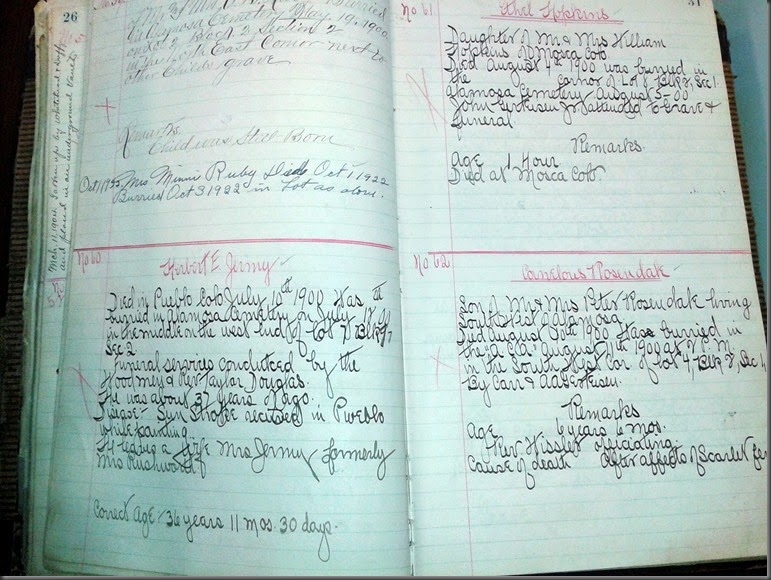 26
of Mr & Mrs
in Alamosa Cemetery May 19, 1900
Block 3 Section 2
in the East Corner next to
other Childs grave
Remarks
Child was Still Born
Mrs Minnie Ruby Died Oct 1 1922
Burried Oct 3 1922 in Lot as above.
Mch. 11, 1904. Taken up by
and placed in an underground Vault
No 60
Herbert E Jermy
Died in Pueblo Colo July 10th 1900 Was
burried in Alamosa Cemetery on July
in the middle on the west End of Lot 7 Blk
Sec 2
Funeral services conducted by the
Rev Taylor Douglas.
He was about 37 years of age.
Disease - Sun Stroke received in Pueblo
while painting.
He leaves a Wife Mrs Jermy formerly
Mrs Rushworth
Correct Age. 36 years 11 mos. 30 days.
No 61
Ethel Hopkins
Daughter of Mr & Mrs William
Hopkins of Mosca Colo
Died August 4th 1900 was burried in
the corner of Lot Blk 7, Sec 1.
Alamosa Cemetery August 5-00
John attended to Grave &
funeral
Remarks
Age 1 Hour
Died at Mosca Colo
No 62
Cornelous Rosendale
Son of Mr & Mrs Peter Rosendale living
South West of Alamosa
Died August 1900 Was burried in
the August 11th 1900 at 2 P.M.
in the South West Cor. of Lot 4, Blk 7, Sec 1,
By Carr &
Remarks
Age 6 years 6 mos.
Rev. Hissler officiating
Cause of death After affects of Scarlet